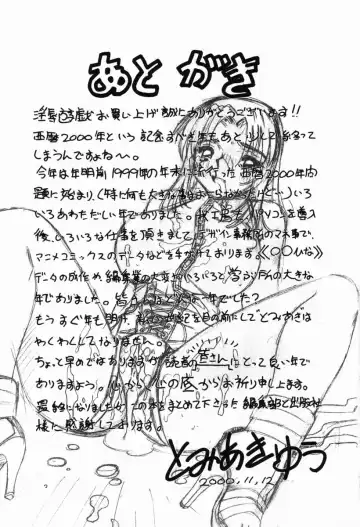 あとがき
お買い上げ頂きありがとうございます!!
西暦2000年という記念すべき年もあと少しで終って
しまうんですよね〜。
今年は年明前1999年の年末に 西暦2000年問
題に始まり、(特に何も大きな事は いろ
いろあわただしい年でありました。 パソコンを導入
後、いろいろな仕事を頂きまして、デザイン事務所のマネ事で、
マニメコミックスのデータなどを手がけております。《〇〇ひな》
データの成作や編集業の大変さ 所の大きな
年でありました。皆さんは 年でした?
もうすぐ年も明け、 を目の前にしてとみあきは
わくわくしてなりません。
ちょっと早めではありますが読者の皆さんにとって良い年で
ありますよう。心から、心の底からお祈り申し上げます。
最後になりましたがこの本をまとめて下さった編集部と出版社
様に感謝しております。
とみあきゆう
2000.11.12